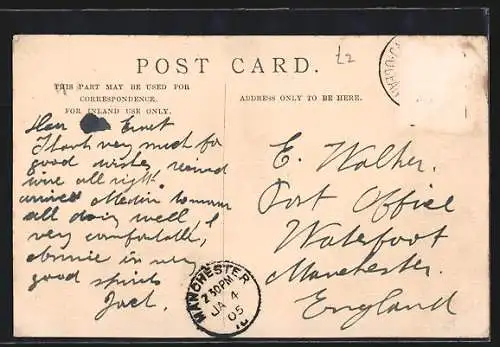 £2
POST CARD.
THIS PART MAY BE USED FOR
CORRESPONDENCE.
FOR INLAND USE ONLY.
ADDRESS ONLY TO BE HERE.
Ernest
Thank very much for
good wishes received
wire all right.
arrived
all doing well, &
very comfortable,
in very
good spirits
Jack.
E. Walker.
Post Office
Waterfoot
Manchester.
England
MANCHESTER
2 30PM
JA 4
05